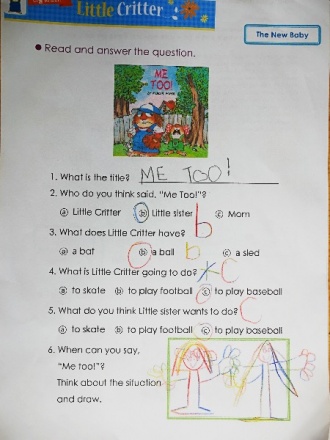 Little Critter
The New Baby
Read and answer the question.
ME
TOO!
1. What is the title? ME TOO!
2. Who do you think said, "Me Too!"?
ⓐ Little Critter ⓑ Little sister b ⓒ Mom
3. What does Little Critter have?
ⓐ a bat ⓑ a ball b ⓒ a sled
4. What is Little Critter going to do? C
ⓐ to skate ⓑ to play football ⓒ to play baseball
5. What do you think Little sister wants to do? C
ⓐ to skate ⓑ to play football ⓒ to play baseball
6. When can you say,
"Me too!"?
Think about the situation
and draw.